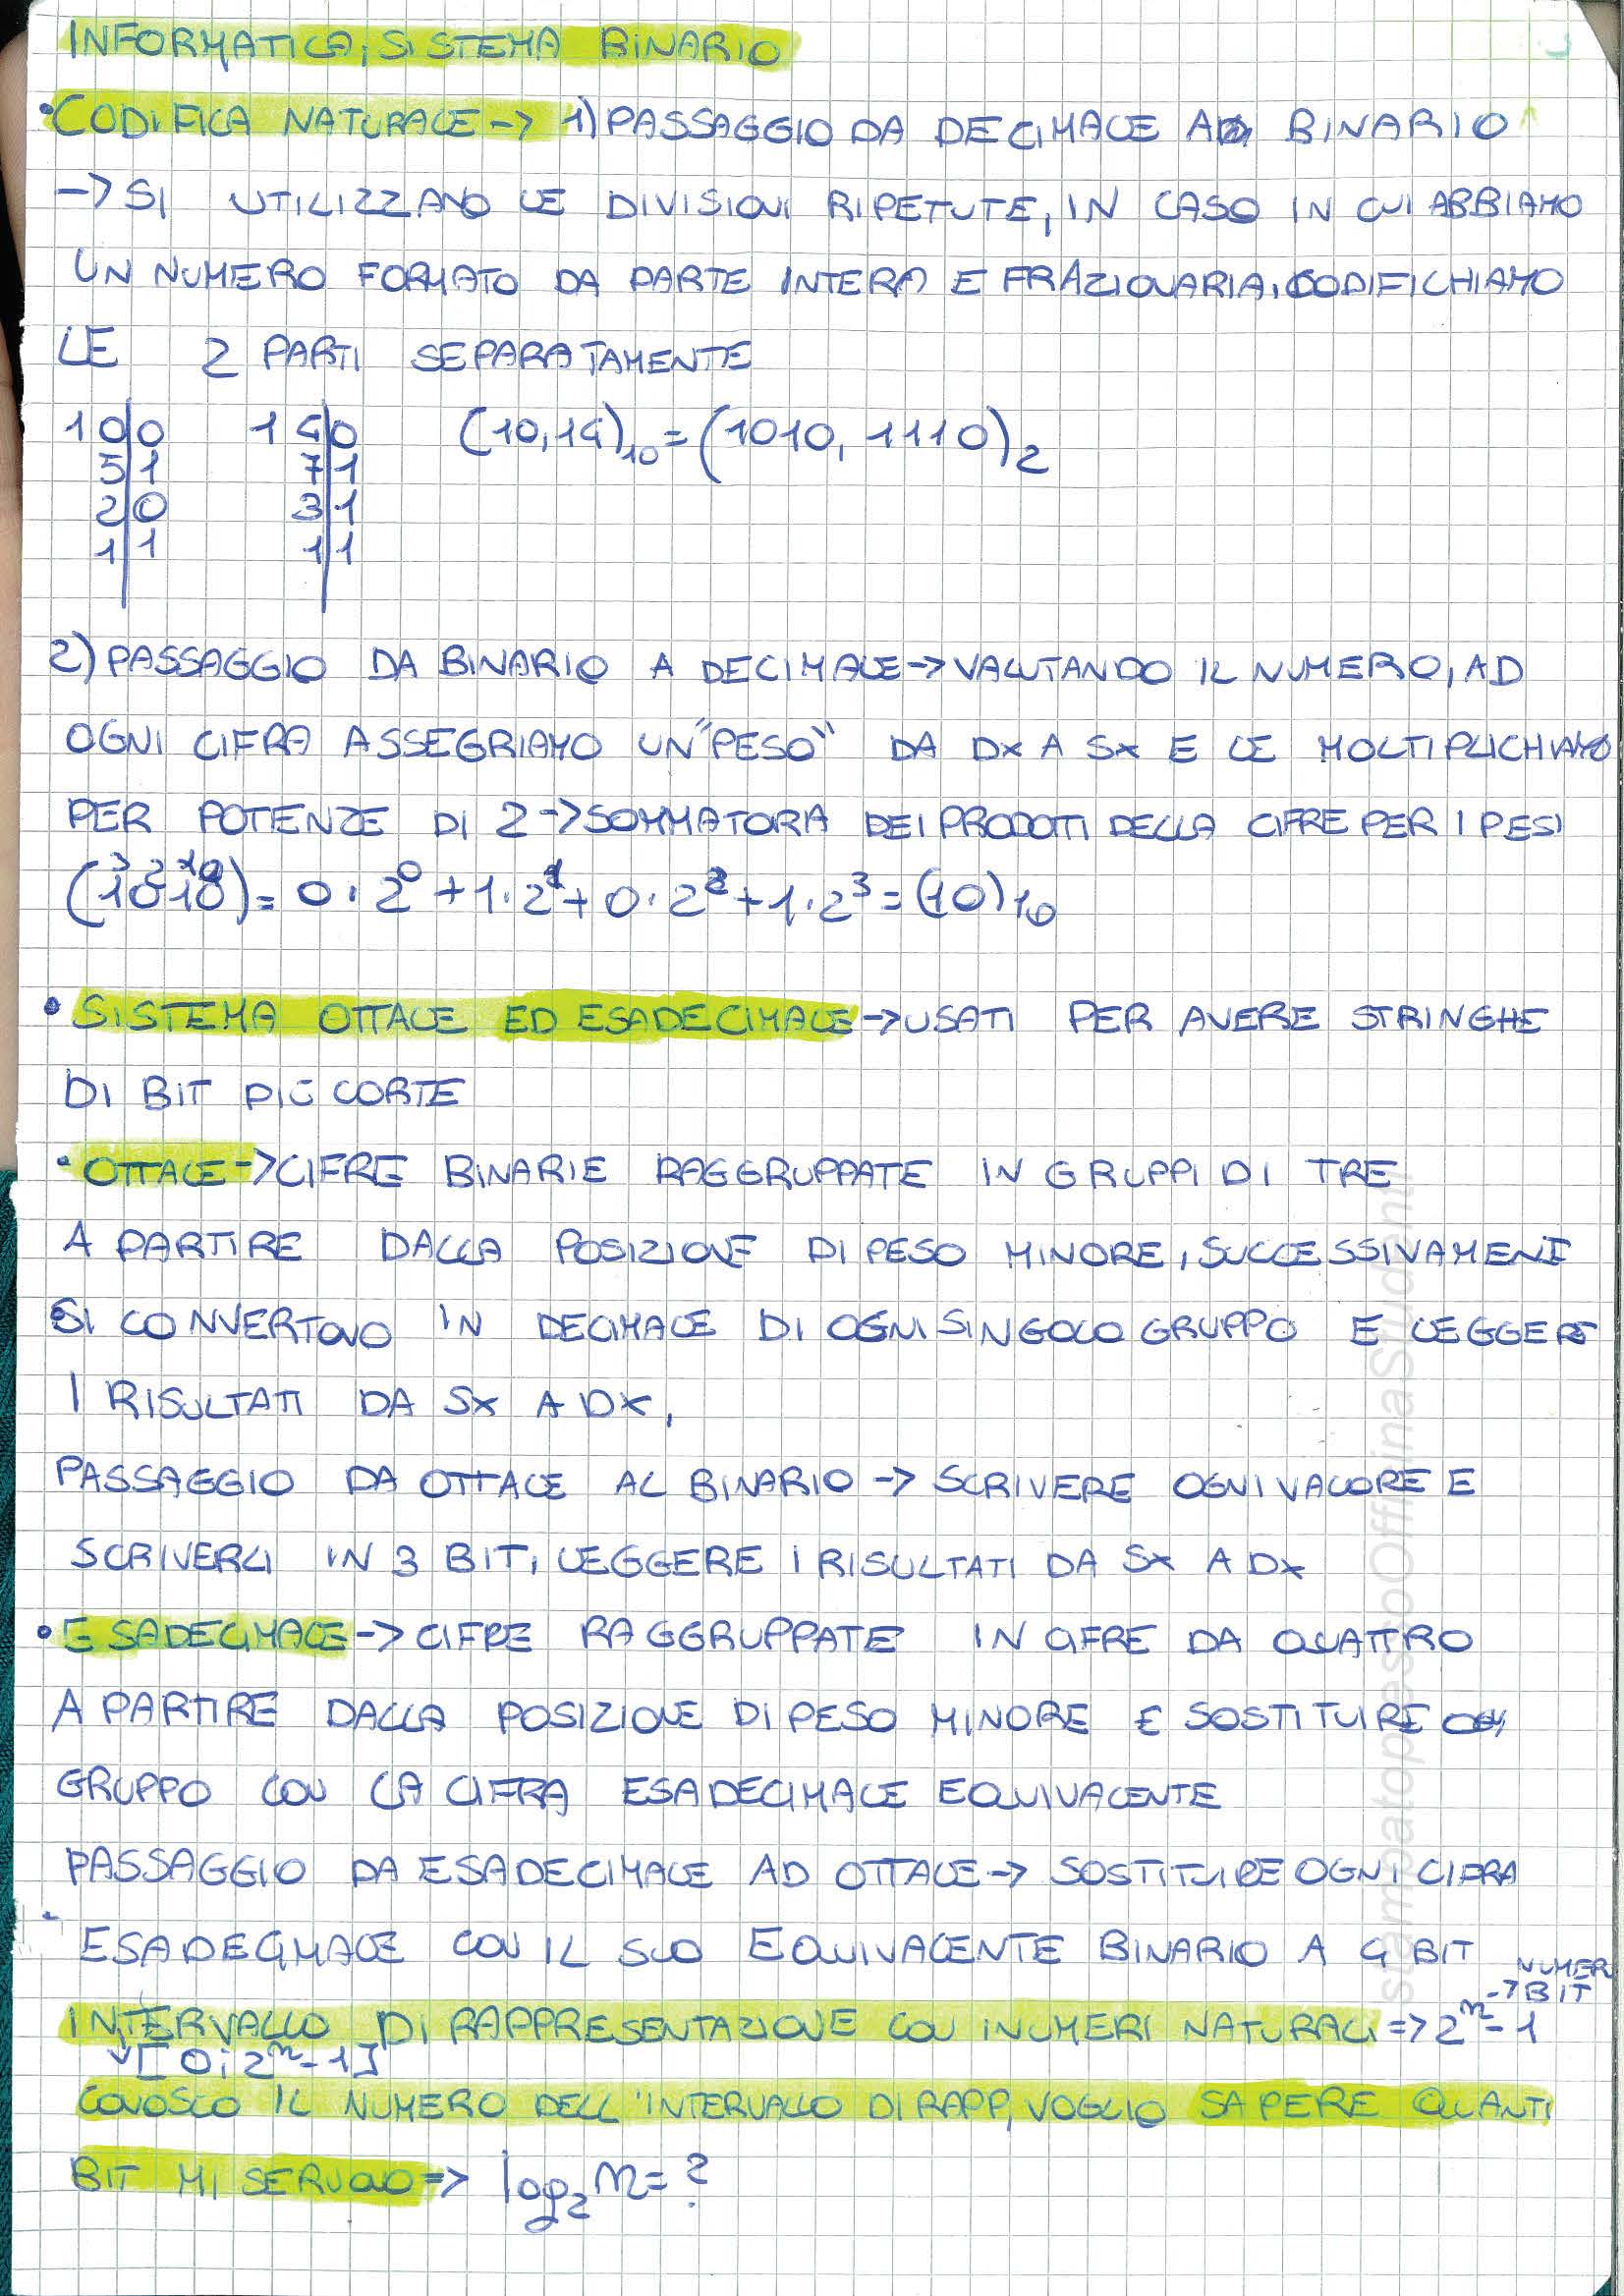 INFORMATICA, SISTEMA BINARIO
• CODIFICA NATURALE -> 1) PASSAGGIO DA DECIMALE AD BINARIO
-> SI UTILIZZANO LE DIVISIONI RIPETUTE, IN CASO IN CUI ABBIAMO
UN NUMERO FORMATO DA PARTE INTERA E FRAZIONARIA, CODIFICHIAMO
LE 2 PARTI SEPARATAMENTE
10|0 14|0 (10,14)₁₀ = (1010, 1110)₂
5|1 7|1
2|0 3|1
1|1 1|1
2) PASSAGGIO DA BINARIO A DECIMALE -> VALUTANDO IL NUMERO, AD
OGNI CIFRA ASSEGRIAMO UN "PESO" DA DX A SX E LE MOLTIPLICHIAMO
PER POTENZE DI 2 -> SOMMATORIA DEI PRODOTTI DELLA CIFRE PER I PESI
(1³0²1¹0⁰) = 0·2⁰ + 1·2¹ + 0·2² + 1·2³ = (10)₁₀
• SISTEMA OTTALE ED ESADECIMALE -> USATI PER AVERE STRINGHE
DI BIT PIÙ CORTE
• OTTALE -> CIFRE BINARIE RAGGRUPPATE IN GRUPPI DI TRE
A PARTIRE DALLA POSIZIONE DI PESO MINORE, SUCCESSIVAMENTE
SI CONVERTONO IN DECIMALE DI OGNI SINGOLO GRUPPO E LEGGERE
I RISULTATI DA SX A DX,
PASSAGGIO DA OTTALE AL BINARIO -> SCRIVERE OGNI VALORE E
SCRIVERLI IN 3 BIT, LEGGERE I RISULTATI DA SX A DX
• ESADECIMALE -> CIFRE RAGGRUPPATE IN CIFRE DA QUATTRO
A PARTIRE DALLA POSIZIONE DI PESO MINORE E SOSTITUIRE
GRUPPO CON LA CIFRA ESADECIMALE EQUIVALENTE
PASSAGGIO DA ESADECIMALE AD OTTALE -> SOSTITUIRE OGNI CIFRA
ESADECIMALE CON IL SUO EQUIVALENTE BINARIO A 4 BIT
INTERVALLO DI RAPPRESENTAZIONE CON I NUMERI NATURALI => 2ⁿ-1 -> NUMERI BIT
[0; 2ⁿ-1]
CONOSCO IL NUMERO DELL'INTERVALLO DI RAPP, VOGLIO SAPERE QUANTI
BIT MI SERVONO => log₂ n = ?
stampatopressoOfficinaStudenti